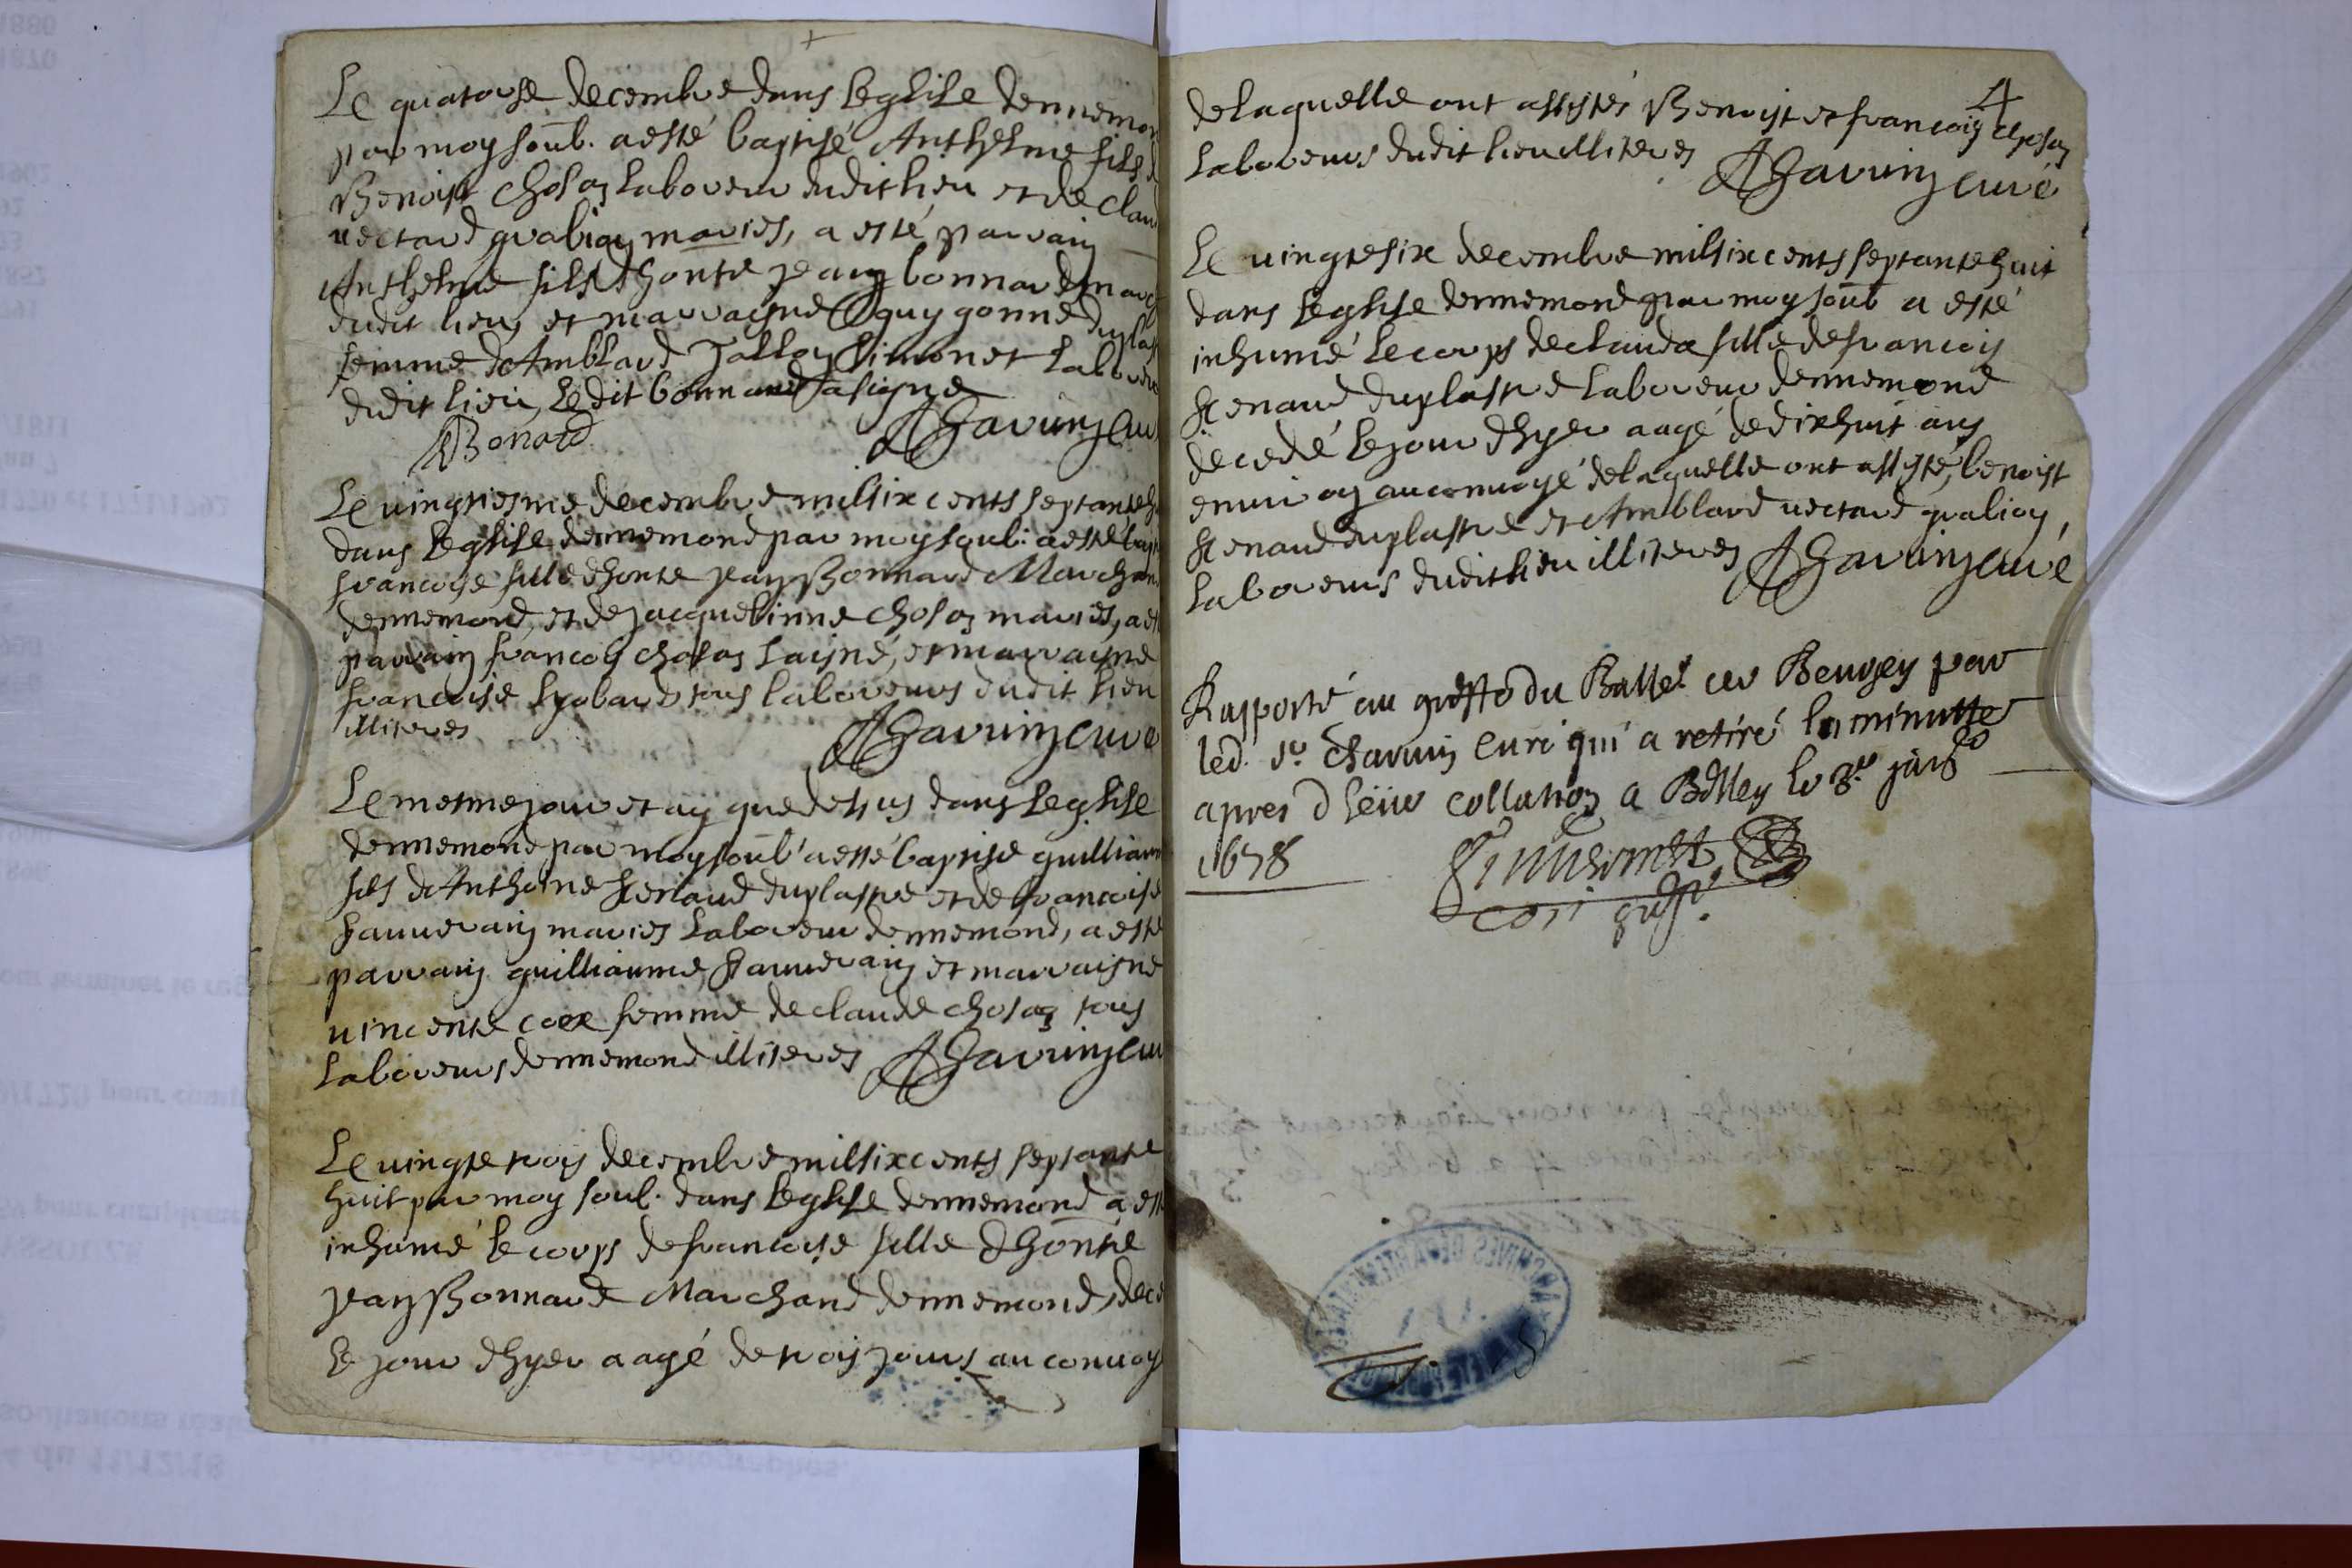 Le quatorse decembre dans leglise dennemon
par moy soub. a esté baptisé Anthelme fils d
Benoist Choson laboreur dudit lieu et de Clau
uectard gralion mariés, a esté parrain
Anthelme fils dhonte jean bonnard marc
dudit lieu, et marrayne guygonne duplas
femme dAmblard Jalloy simonet labore
dudit lieu, ledit bonnard a signe
ABonard Charuin cur
Le uingtiesme decembre mil six cents septante h
dans leglise dennemond par moy soub: a esté bap
francoise fille dhonte jean Bonnard Marchan
dennemond, et de jacquelinne choson mariés, a est
parrain francois choson laisné, et marrayne
francoise lyobard tous laboreurs dudit lieu
illiteres Charuin curé
Le mesme jour et an que dessus dans leglise
dennemond par moy soub' a esté baptise guilliaum
fils dAnthoine Renaud duplastre et de francoise
jauuerain mariés laboreur dennemond, a esté
parrain guilliaume jauuerain et marraisne
uincente coex femme de claude choson tous
laboreurs dennemond illiteres Charuin cur
Le uingte trois decembre mil six cents septante
huit par moy soub. dans leglise dennemond a est
inhumé le corps de francoise fille dhonte
jean Bonnard Marchand dennemond, dece
le jour dhyer aagé de trois jours au conuoy
4
de laquelle ont assistés Benoist et francois choson
laboreurs dudit lieu illiteres Charuin curé
Le uingte six decembre mil six cents septante huit
dans leglise dennemond par moy soub a esté
inhumé le corps de clauda fille de francois
Renaud duplastre laboreur dennemond
decedé le jour dhyer aagé de dix huit ans
enuiron au conuoyé de laquelle ont assisté, benoist
Renaud duplastre et Amblard uectard gralion,
laboreurs dudit lieu illiteres Charuin curé
Rapporté au greffe du Balle. de Beugey par
led. sr. Charuin curé qui a retiré la minutte
apres deüe collation a Belley le 3e janv
1678